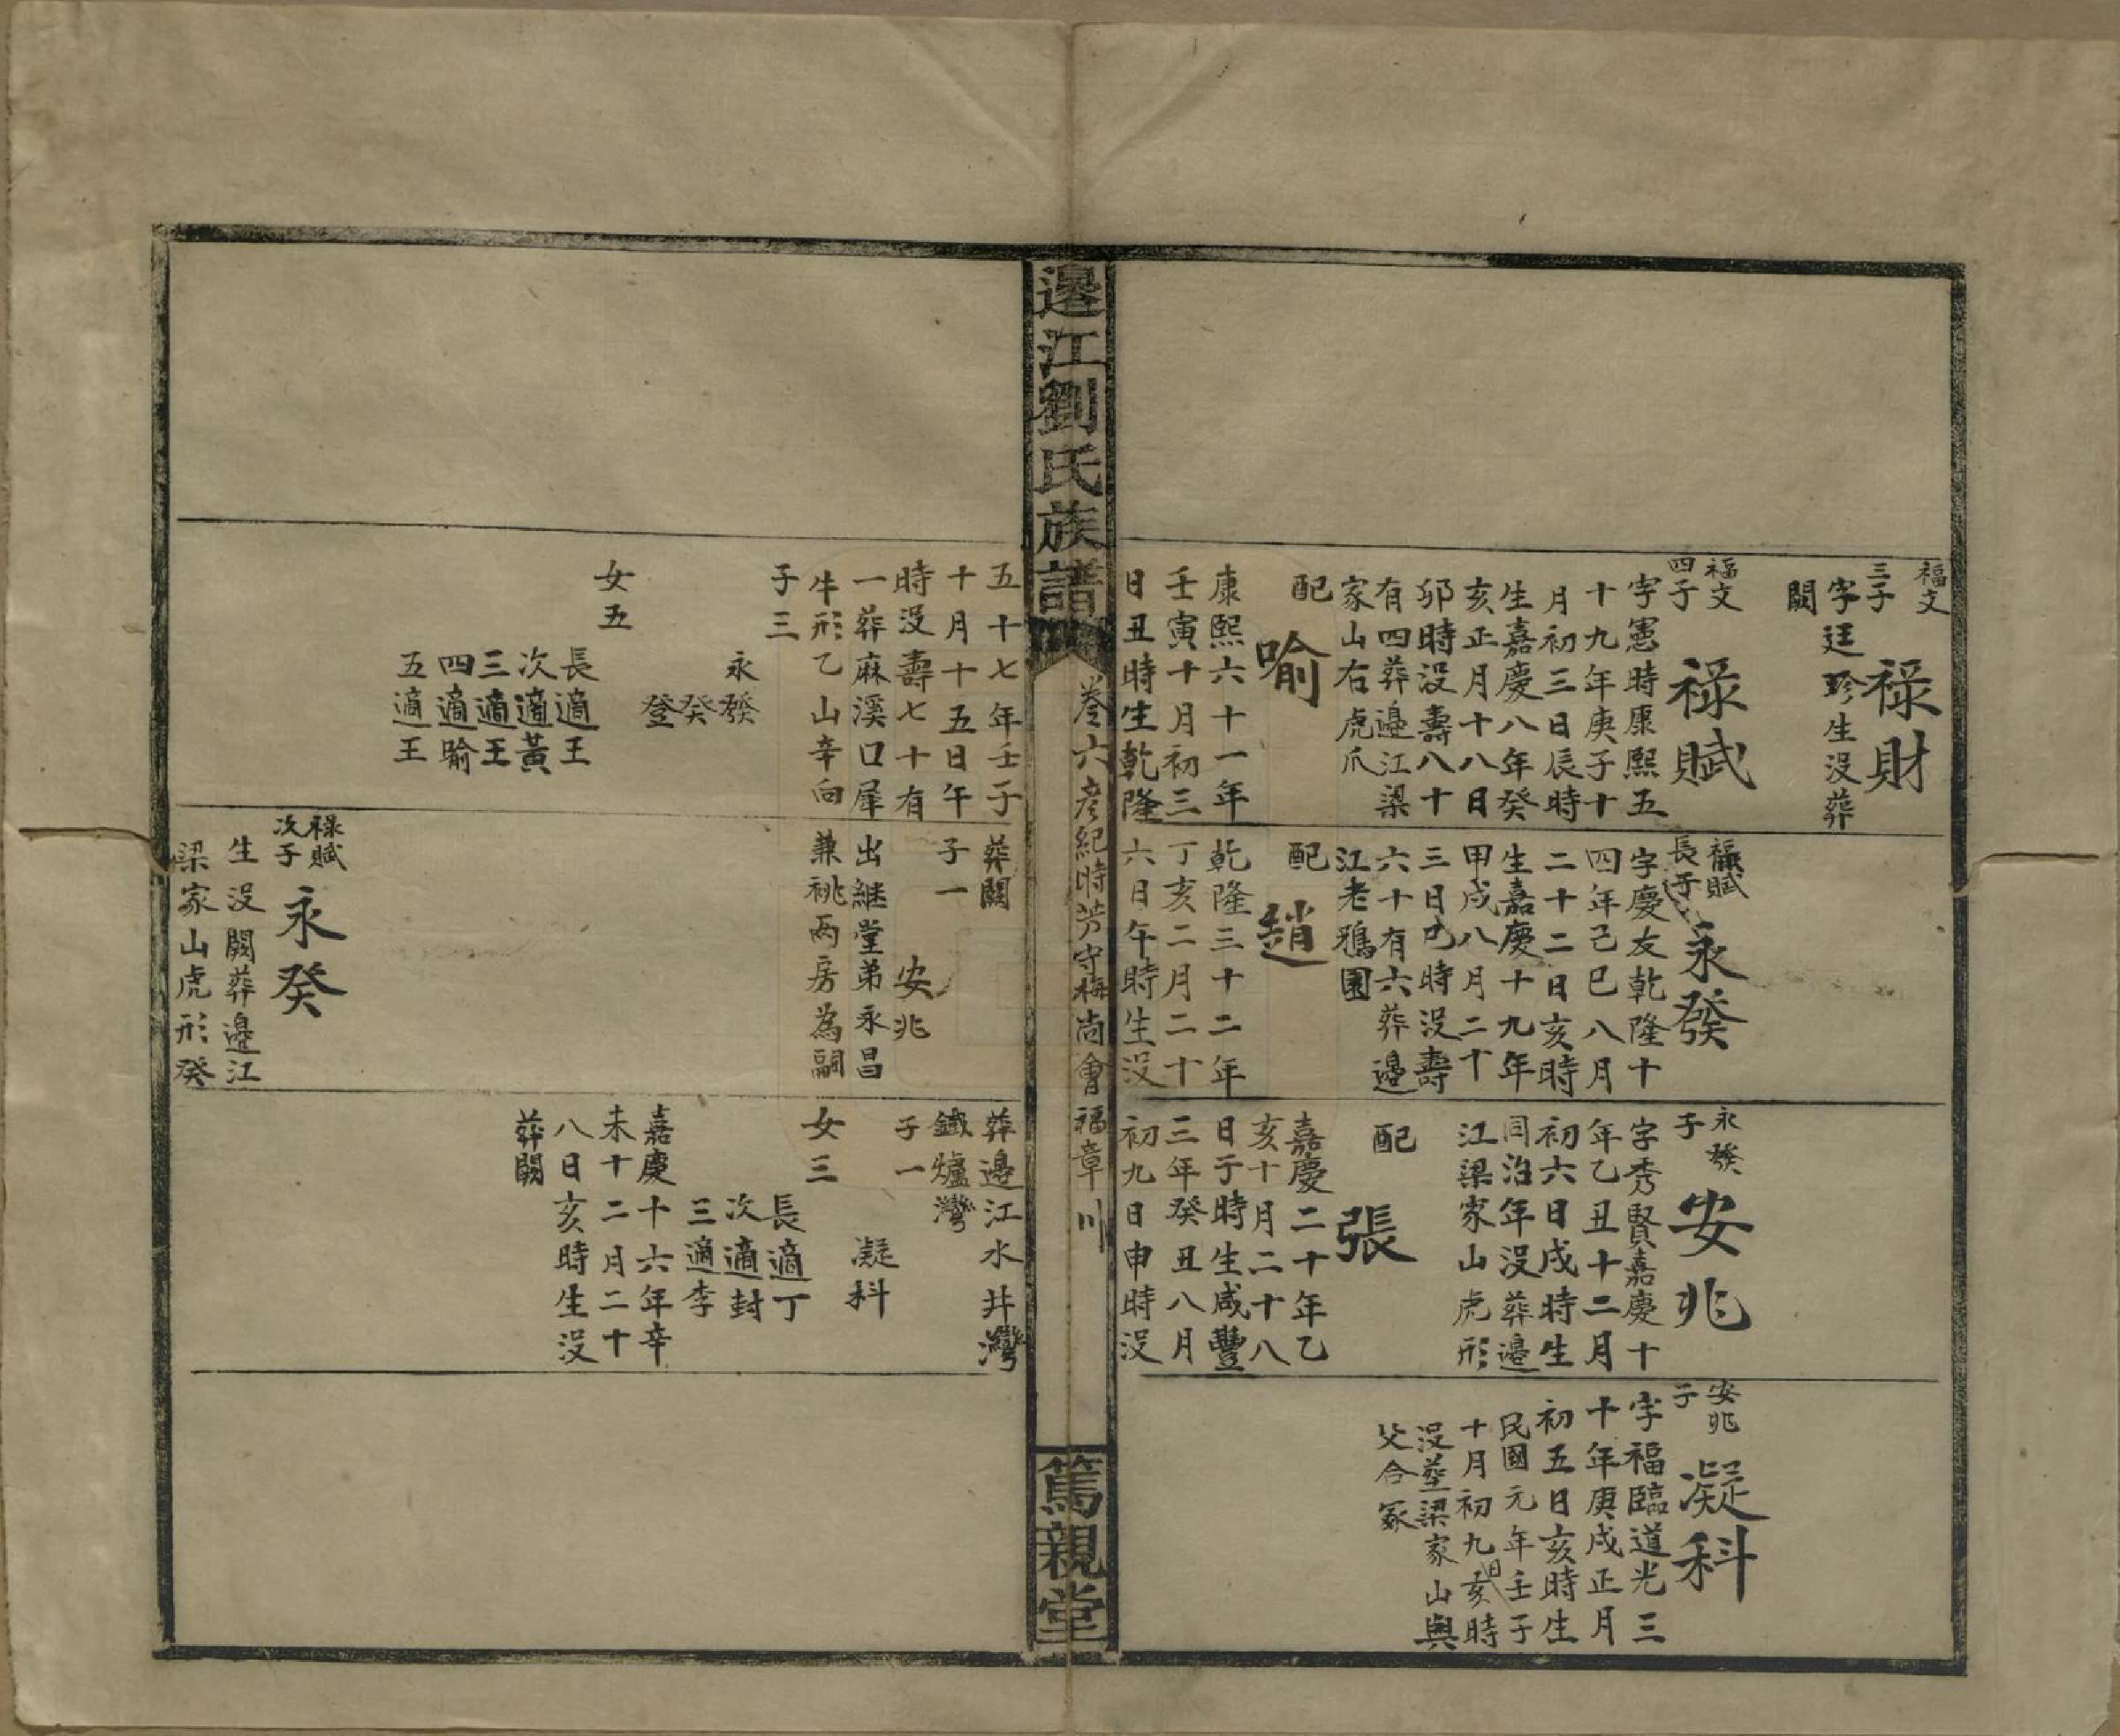 福文
三子
祿財
字廷珍生沒葬
闕
福文
四子
祿賦
字憲時康熙五
十九年庚子十
月初三日辰時
生嘉慶八年癸
亥正月十八日
卯時沒壽八十
有四葬邉江梁
家山右虎爪
配
喻
康熙六十一年
壬寅十月初三
日丑時生乾隆
祿賦
長子
永發
字慶友乾隆十
四年己巳八月
二十二日亥時
生嘉慶十九年
甲戌八月二十
三日巳時沒壽
六十有六葬邉
江老鴉園
配
趙
乾隆三十二年
丁亥二月二十
六日午時生沒
永發
子
安兆
字秀賢嘉慶十
年乙丑十二月
初六日戌時生
同治年沒葬邉
江梁家山虎形
配
張
嘉慶二十年乙
亥十月二十八
日子時生咸豐
三年癸丑八月
初九日申時沒
安兆
子
凝科
字福臨道光三
十年庚戌正月
初五日亥時生
民國元年壬子
十月初九日亥時
沒塟梁家山與
父合冢
邉江劉氏族譜
卷六彥紀時芳守梅尚會福章
川
篤親堂
五十七年壬子
十月十五日午
時沒壽七十有
一葬麻溪口犀
牛形乙山辛向
子三
永發
癸
登
女五
長適王
次適黃
三適王
四適喻
五適王
葬闕
子一
安兆
出継堂弟永昌
兼祧兩房為嗣
祿賦
次子
永癸
生沒闕葬邉江
梁家山虎形癸
葬邉江水井灣
鐵爐灣
子一
凝科
女三
長適丁
次適封
三適李
嘉慶十六年辛
未十二月二十
八日亥時生沒
葬闕